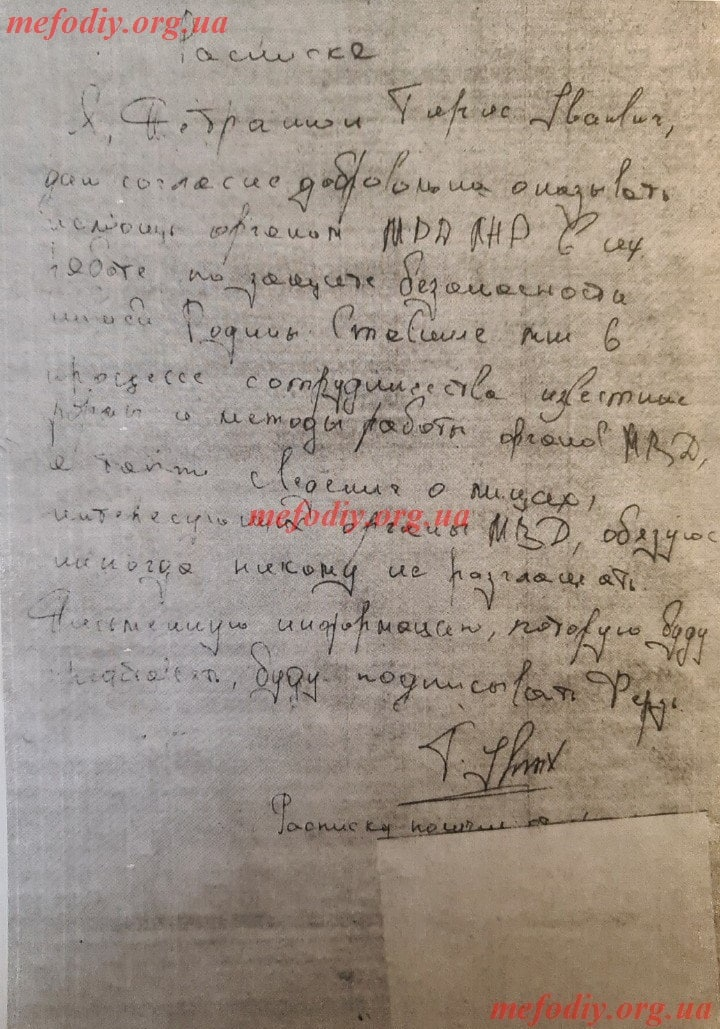 mefodiy.org.ua
Расписка
Я, Иванович,
даю согласие добровольно оказывать
помощь органам в их
работе по защите безопасности
нашей Родины. Ставшие мне в
процессе сотрудничества известные
и методы работы органов
а также сведения о лицах,
mefodiy.org.ua
интересующих органы обязуюсь
никогда никому не разглашать.
Письменную информацию, которую буду
буду подписывать
Г.
Расписку
mefodiy.org.ua